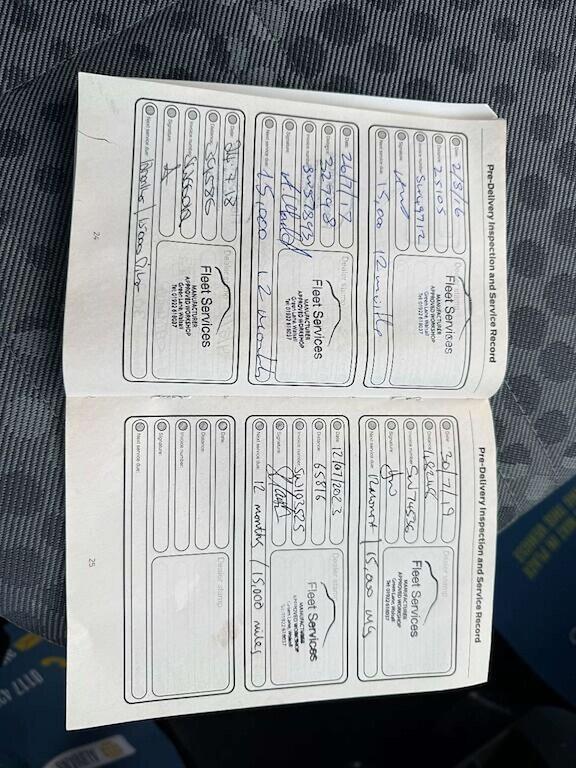 Pre-Delivery Inspection and Service Record
Date: 2/8/16
Distance: 25105
Invoice number: SW49712
Signature:
Next service due: 15,000 12 months
Dealer stamp
Fleet Services
MANUFACTURER
APPROVED WORKSHOP
Green Lane, Walsall
Tel: 01922 618037
Date: 26/7/17
Distance: 32798
Invoice number: SW57892
Signature:
Next service due: 15,000 12 months
Dealer stamp
Fleet Services
MANUFACTURER
APPROVED WORKSHOP
Green Lane, Walsall
Tel: 01922 618037
Date: 24.7.18
Distance:
Invoice number:
Signature:
Next service due:
Dealer stamp
Fleet Services
MANUFACTURER
APPROVED WORKSHOP
Green Lane, Walsall
Tel: 01922 618037
24
Pre-Delivery Inspection and Service Record
Date: 30/7/19
Distance:
Invoice number: SW74536
Signature:
Next service due: 15,000
Dealer stamp
Fleet Services
MANUFACTURER
APPROVED WORKSHOP
Green Lane, Walsall
Tel: 01922 618037
Date: 12/07/2023
Distance: 65816
Invoice number: SW103525
Signature:
Next service due: 12 months / 15,000 miles
Dealer stamp
Fleet Services
MANUFACTURER
APPROVED WORKSHOP
Green Lane, Walsall
Tel: 01922 618037
Date:
Distance:
Invoice number:
Signature:
Next service due:
Dealer stamp
25